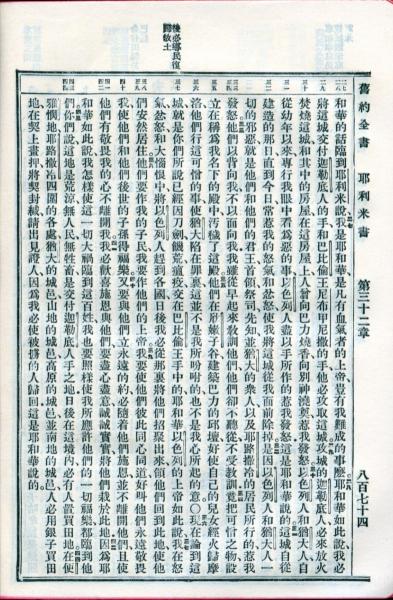 舊約全書 耶利米書 第三十二章 八百七十四
後必鄉民復
歸故土
和華的話臨到耶利米說我是耶和華是凡有血氣者的上帝豈有我難成的事麼耶和華如此說我必
將這城交付迦勒底人的手和巴比倫王尼布甲尼撒的手他必攻取這城攻城的迦勒底人必來放火
焚燒這城和其中的房屋在這房屋上人曾向巴力燒香向別神澆奠惹我發怒以色列人和猶大人自
從幼年以來專行我眼中看為惡的事以色列人盡以手所作的惹我發怒這是耶和華說的這城自從
建造的那日直到今日常惹我的怒氣和忿怒使我將這城從我面前除掉是因以色列人和猶大人一
切的邪惡就是他們和他們的君王首領祭司先知並猶大的眾人以及耶路撒冷的居民所行的惹我
發怒他們以背向我不以面向我我雖從早起來教訓他們他們卻不聽從不受教訓竟把可憎之物設
立在稱為我名下的殿中污穢了這殿他們在欣嫩子谷建築巴力的邱壇好使自己的兒女經火歸摩
洛他們行這可憎的事使猶大陷在罪裏這並不是我所吩咐的也不是我心所起的意〇現在論到這
城就是你們所說已經因刀劍饑荒瘟疫交在巴比倫王手中的耶和華以色列的上帝如此說我在怒
氣忿怒和大惱恨中將以色列人趕到各國日後我必從那裏將他們招聚出來領他們回到此地使他
們安然居住他們要作我的子民我要作他們的上帝我要使他們彼此同心同道好叫他們永遠敬畏
我使他們和他們後世的子孫得福樂又要與他們立永遠的約必隨着他們施恩並不離開他們且使
他們有敬畏我的心不離開我我必歡喜施恩與他們要盡心盡意誠誠實實將他們栽於此地因為耶
和華如此說我怎樣使這一切大禍臨到這百姓我也要照樣使我所應許他們的一切福樂都臨到他
們你們說這地是荒涼無人民無牲畜是交付迦勒底人手之地日後在這境內必有人置買田地在便
雅憫地耶路撒冷四圍的各處猶大的城邑山地的城邑高原的城邑並南地的城邑人必用銀子買田
地在契上畫押將契封緘請出見證人因為我必使被擄的人歸回這是耶和華說的